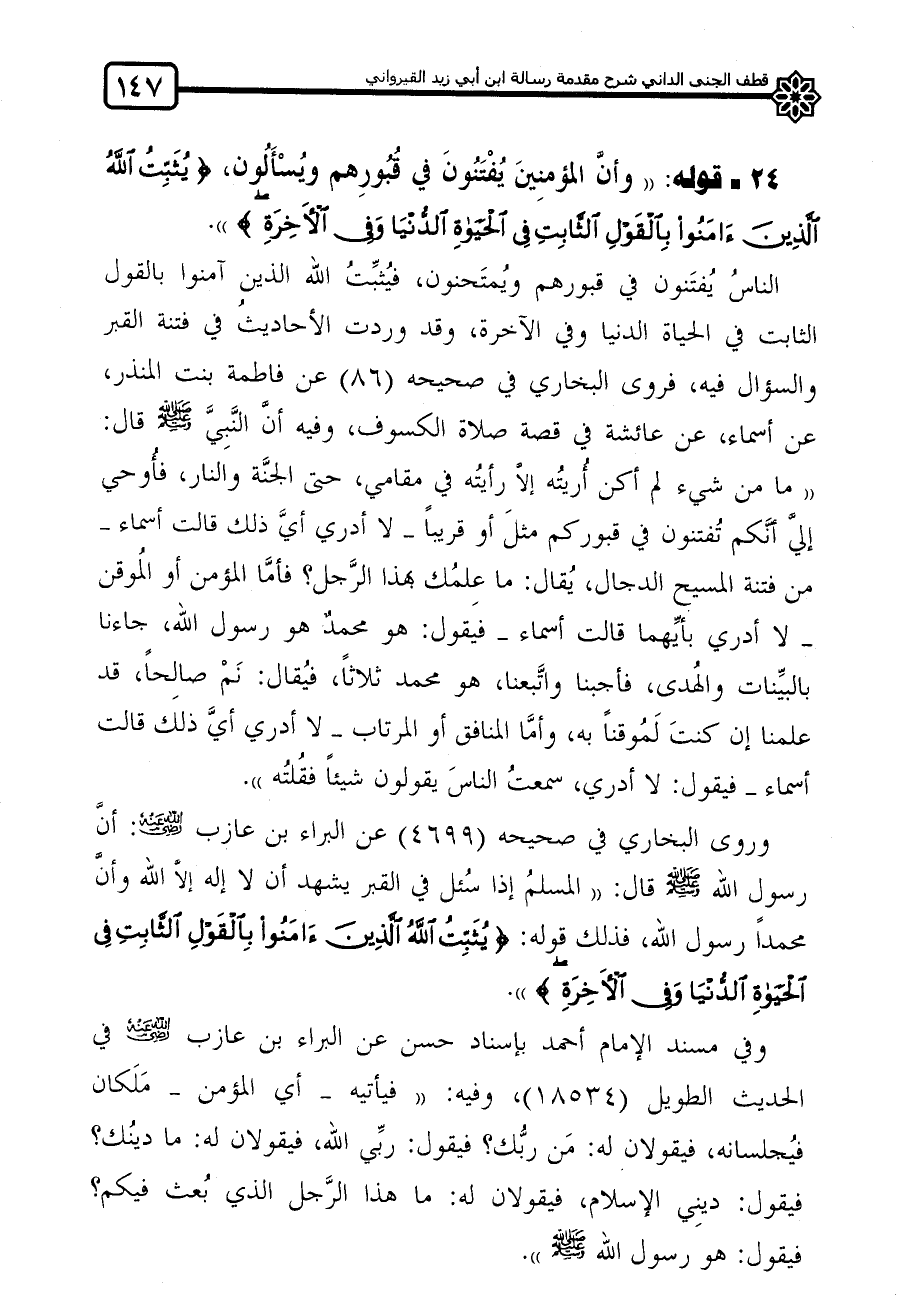 قطف الجنى الداني شرح مقدمة رسالة ابن أبي زيد القيرواني
١٤٧
٢٤ ـ قوله: (( وأنَّ المؤمنينَ يُفْتَنُونَ في قُبُورِهم ويُسْأَلُون، ﴿ يُثَبِّتُ ٱللَّهُ
ٱلَّذِينَ ءَامَنُواْ بِٱلْقَوْلِ ٱلثَّابِتِ فِى ٱلْحَيَوٰةِ ٱلدُّنْيَا وَفِى ٱلْأَخِرَةِۖ ﴾ )).
الناسُ يُفتَنون في قبورهم ويُمتَحنون، فيُثبِّتُ الله الذين آمنوا بالقول
الثابت في الحياة الدنيا وفي الآخرة، وقد وردت الأحاديثُ في فتنة القبر
والسؤال فيه، فروى البخاري في صحيحه (٨٦) عن فاطمة بنت المنذر،
عن أسماء، عن عائشة في قصة صلاة الكسوف، وفيه أنَّ النَّبيَّ ﷺ قال:
(( ما من شيء لم أكن أُريتُه إلاَّ رأيتُه في مقامي، حتى الجنَّة والنار، فأُوحي
إليَّ أنَّكم تُفتنون في قبوركم مثلَ أو قريباً ـ لا أدري أيَّ ذلك قالت أسماء ـ
من فتنة المسيح الدجال، يُقال: ما عِلمُك بهذا الرَّجل؟ فأمَّا المؤمن أو المُوقن
ـ لا أدري بأيِّهما قالت أسماء ـ فيقول: هو محمدٌ هو رسول الله، جاءنا
بالبيِّنات والهُدى، فأجبنا واتَّبعنا، هو محمد ثلاثاً، فيُقال: نَمْ صالِحاً، قد
علمنا إن كنتَ لَمُوقناً به، وأمَّا المنافق أو المرتاب ـ لا أدري أيَّ ذلك قالت
أسماء ـ فيقول: لا أدري، سمعتُ الناسَ يقولون شيئاً فقُلتُه )).
وروى البخاري في صحيحه (٤٦٩٩) عن البراء بن عازب رضي الله عنه: أنَّ
رسول الله ﷺ قال: (( المسلمُ إذا سُئل في القبر يشهد أن لا إله إلاَّ الله وأنَّ
محمداً رسول الله، فذلك قوله: ﴿ يُثَبِّتُ ٱللَّهُ ٱلَّذِينَ ءَامَنُواْ بِٱلْقَوْلِ ٱلثَّابِتِ فِى
ٱلْحَيَوٰةِ ٱلدُّنْيَا وَفِى ٱلْأَخِرَةِۖ ﴾ )).
وفي مسند الإمام أحمد بإسناد حسن عن البراء بن عازب رضي الله عنه في
الحديث الطويل (١٨٥٣٤)، وفيه: (( فيأتيه ـ أي المؤمن ـ مَلَكان
فيُجلسانه، فيقولان له: مَن ربُّك؟ فيقول: ربِّي الله، فيقولان له: ما دينُك؟
فيقول: ديني الإسلام، فيقولان له: ما هذا الرَّجل الذي بُعث فيكم؟
فيقول: هو رسول الله ﷺ )).